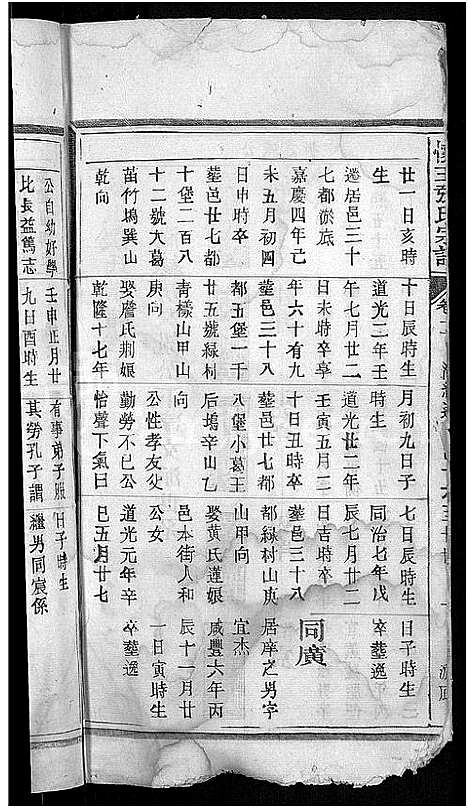 張氏宗譜
廿一日亥時
生
遷居邑三十
七都淤底
嘉慶四年己
未五月初四
日申時卒
塟邑廿七都
十堡二百八
十二號大葛
茁竹塢巽山
乾向
十日辰時生
道光二年壬
午七月廿二
日未時卒享
年六十有九
塟邑三十八
都玉堡一千
廿五號緑村
青檨山甲山
庚向
娶詹氏荆娘
乾隆十七年
月初九日子
時生
道光廿二年
壬寅五月二
十日丑時卒
塟邑廿七都
八堡小葛王
后塢辛山乙
向
公性孝友父
勤勞不已公
怡聲下氣曰
七日辰時生
同治七年戊
辰七月廿二
日吉時卒
塟邑三十八
都緑村山庚
山甲向
娶黄氏蓮娘
邑本街人和
公女
道光元年辛
巳五月廿七
日子時生
卒塟逸
同廣
居庠之男字
宜杰
咸豐六年丙
辰十一月廿
一日寅時生
卒塟逸
公自幼好學
比長益篤志
壬申正月廿
九日酉時生
有事弟子服
其勞孔子謂
日子時生
繼男同宸係